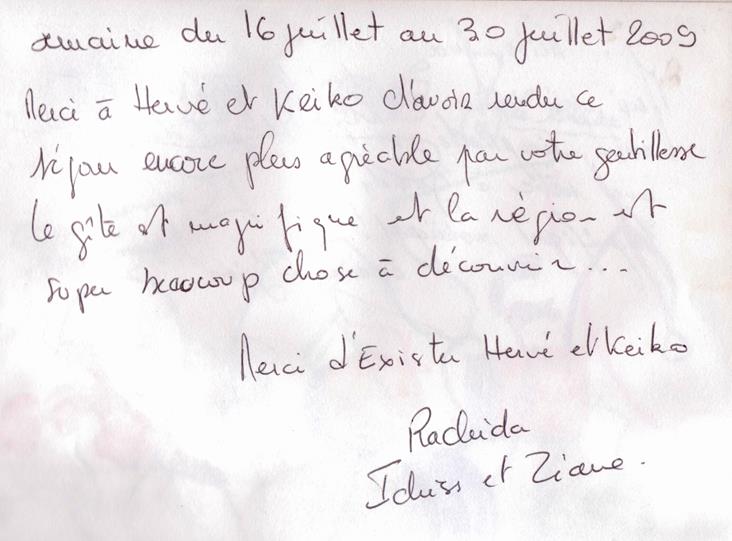 semaine du 16 juillet au 30 juillet 2009
Merci à Hervé et Keiko d'avoir rendu ce
séjour encore plus agréable par votre gentillesse
le gîte est magnifique et la région est
super beaucoup chose à découvrir...
Merci d'Exister Hervé et Keiko
Rachida
Idriss et Ziane.